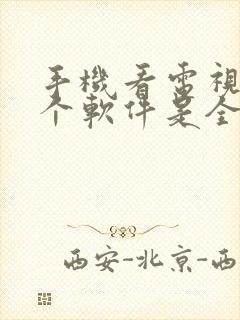 手機看電視
个軟件是全
西安-北京-西